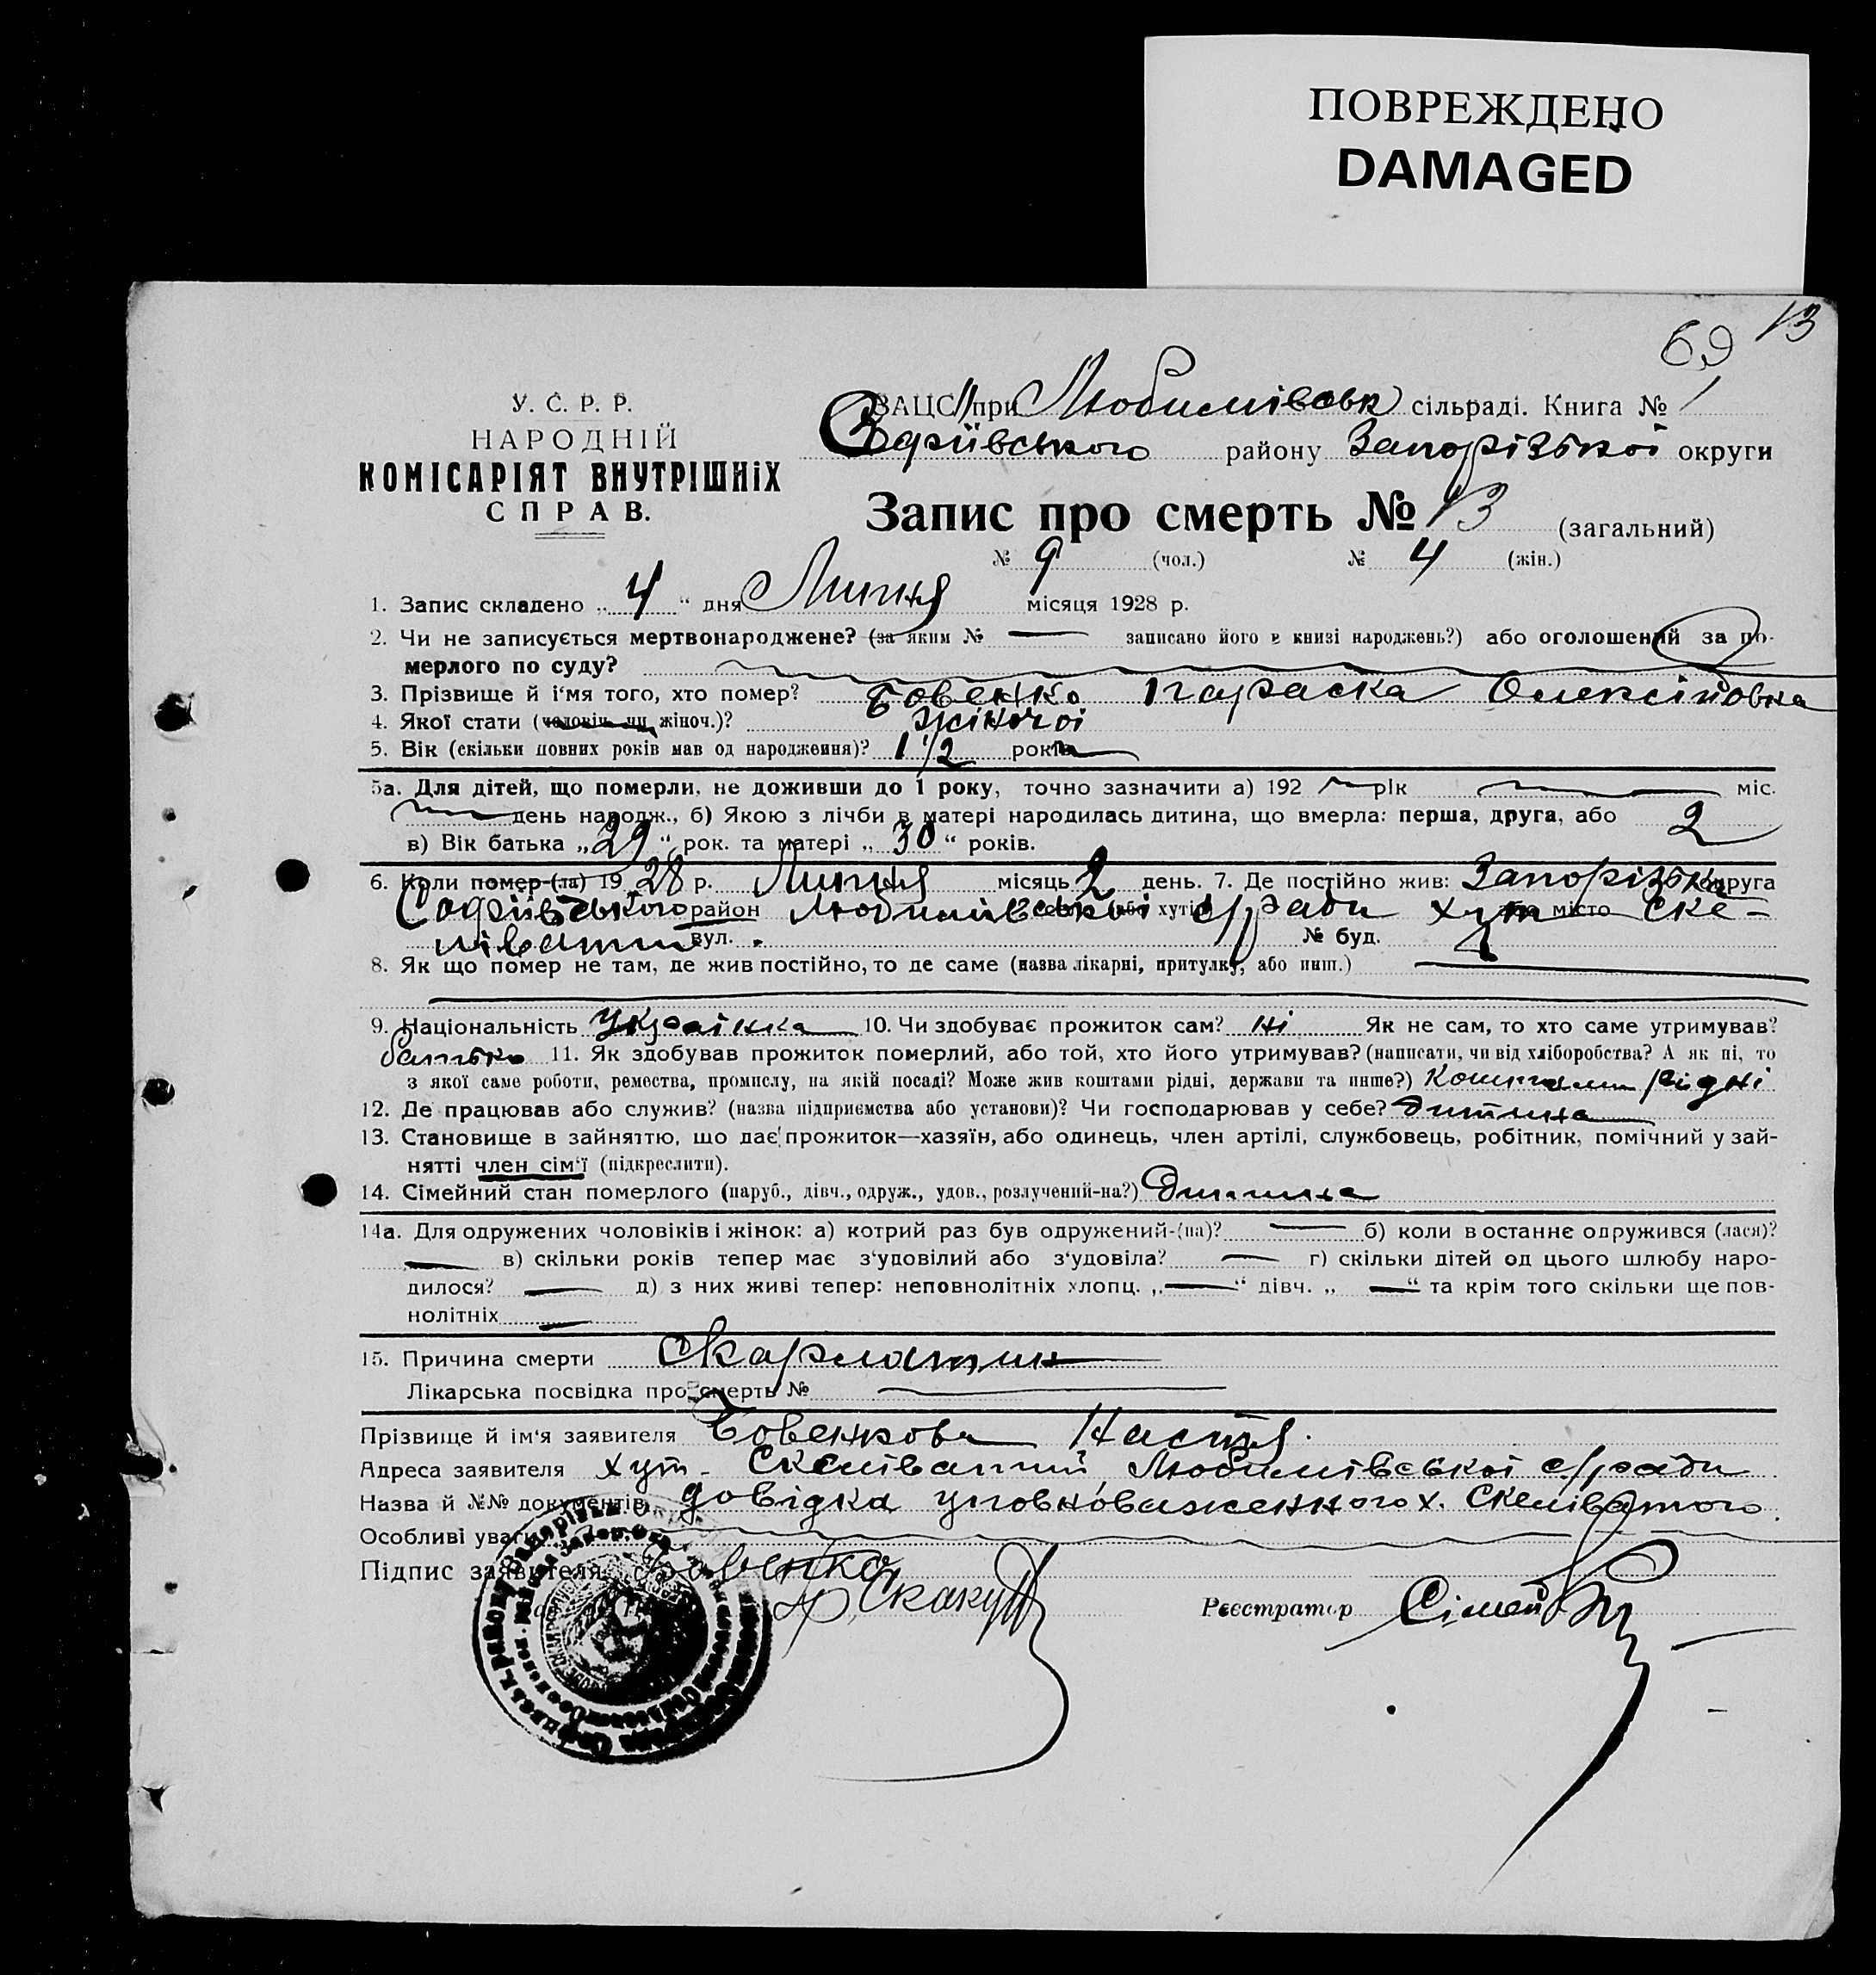 ПОВРЕЖДЕНО
DAMAGED
69 13
У. С. Р. Р.
НАРОДНІЙ
КОМІСАРІЯТ ВНУТРІШНІХ
СПРАВ.
ЗАЦС при Любимівськ сільраді. Книга № 1
Софіївського району Запорізької округи
Запис про смерть № 13 (загальний)
№ 9 (чол.) № 4 (жін.)
1. Запис складено „ 4 “ дня Липня місяця 1928 р.
2. Чи не записується мертвонароджене? (за яким № — записано його в книзі народжень?) або оголошений за по-
мерлого по суду?
3. Прізвище й і'мя того, хто помер? Бовенко Параска Олексіївна
4. Якої стати (чоловіч. чи жіноч.)? жіночої
5. Вік (скільки повних років мав од народження)? 1 1/2 років
5а. Для дітей, що померли, не доживши до 1 року, точно зазначити а) 192 — рік — міс.
— день народж., б) Якою з лічби в матері народилась дитина, що вмерла: перша, друга, або 2
в) Вік батька „ 29 “ рок. та матері „ 30 “ років.
6. Коли помер-(ла) 1928 р. Липня місяць 2 день. 7. Де постійно жив: Запорізька округа
Софіївського район Любимівської с/ради хут або місто Ске-
люватий вул. № буд.
8. Як що помер не там, де жив постійно, то де саме (назва лікарні, притулку, або инш.) —
9. Національність Українка 10. Чи здобуває прожиток сам? ні Як не сам, то хто саме утримував?
батько 11. Як здобував прожиток померлий, або той, хто його утримував? (написати, чи від хліборобства? А як ні, то
з якої саме роботи, ремества, промислу, на якій посаді? Може жив коштами рідні, держави та инше?) Коштами рідні
12. Де працював або служив? (назва підприємства або установи)? Чи господарював у себе? дитина
13. Становище в зайняттю, що дає прожиток—хазяїн, або одинець, член артілі, службовець, робітник, помічний у зай-
нятті член сім'ї (підкреслити).
14. Сімейний стан померлого (паруб., дівч., одруж., удов., розлучений-на?) Дитина
14а. Для одружених чоловіків і жінок: а) котрий раз був одружений-(на)? — б) коли в останнє одружився (лася)?
— в) скільки років тепер має з'удовілий або з'удовіла? — г) скільки дітей од цього шлюбу наро-
дилося? — д) з них живі тепер: неповнолітніх хлопц. „ — “ дівч. „ — “ та крім того скільки ще пов-
нолітніх —
15. Причина смерти Скарлатин
Лікарська посвідка про смерть № —
Прізвище й ім'я заявителя Бовенкова Настя.
Адреса заявителя хут. Скелюватий Любимівської с/ради
Назва й №№ документів довідка уповноваженного х. Скелюватого.
Особливі уваги
Підпис заявителя Бовенко
Скакун
Реєстратор